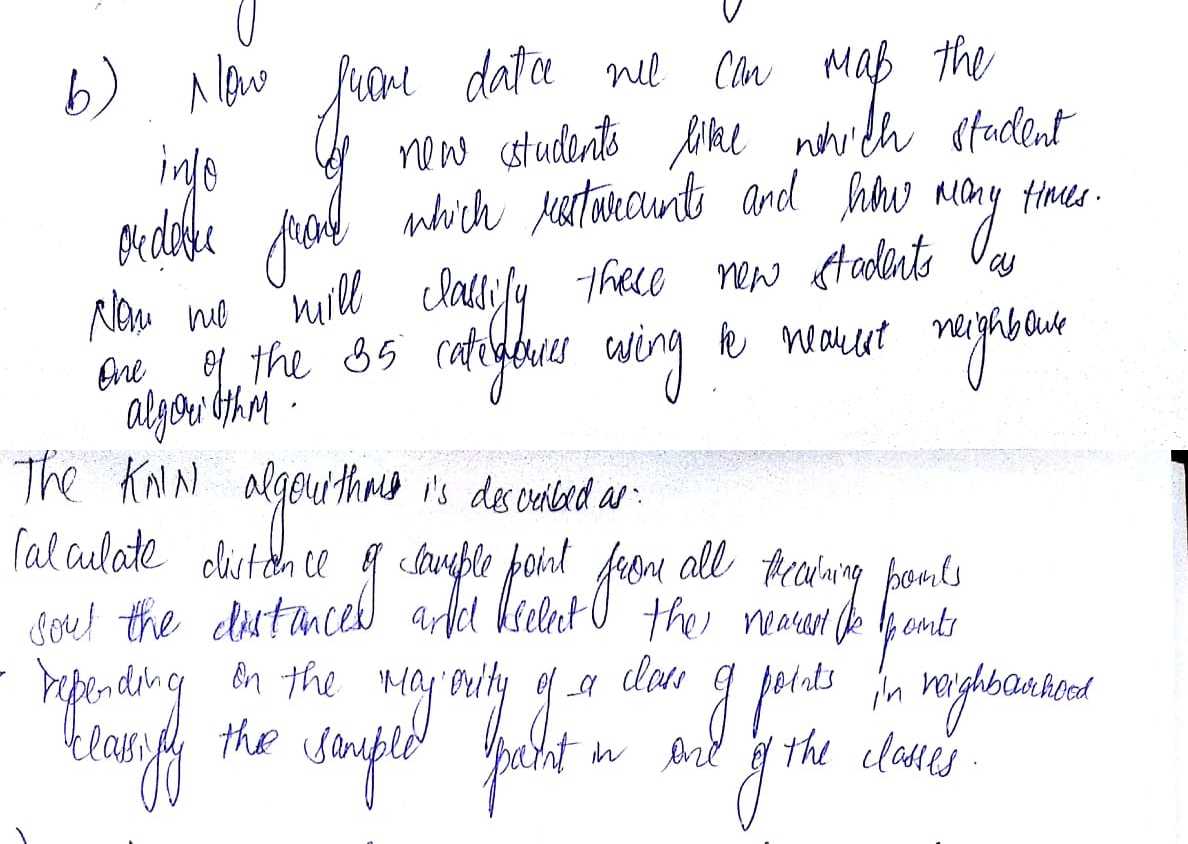 b) Now from data we can map the
info of new students like which student
orders from which restaurants and how many times.
Now we will classify these new students as
one of the 35 categories using k nearest neighbour
algorithm.
The KNN algorithms is described as:
Calculate distance of sample point from all training points
sort the distances and select the nearest k points
Depending on the majority of a class of points in neighbourhood
classify the sample point in one of the classes.